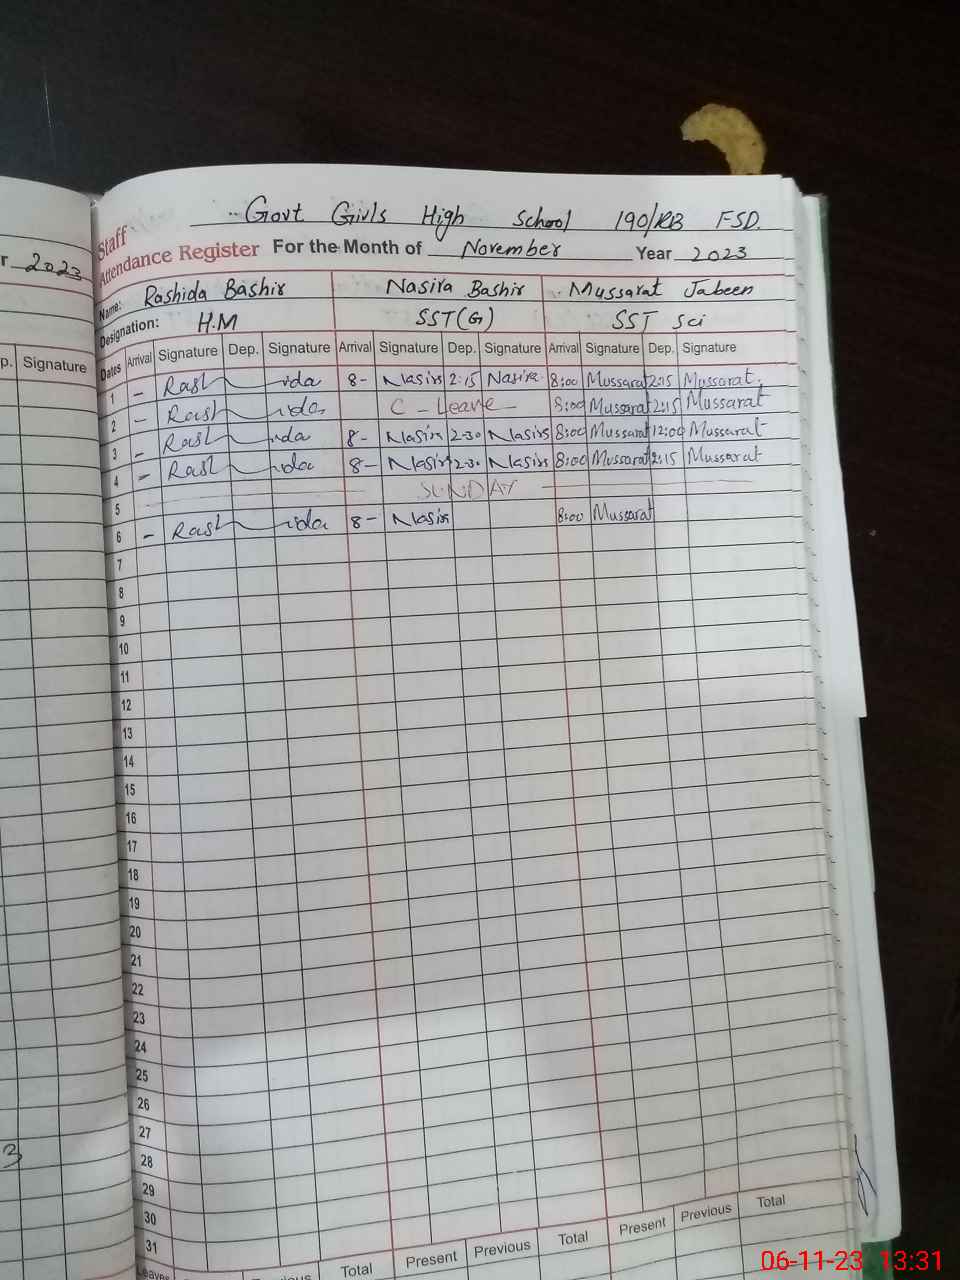 Govt Girls High School 190/RB FSD.
Staff
Attendance Register For the Month of November Year 2023
r 2023
Name: Rashida Bashir Nasira Bashir Mussarat Jabeen
Designation: H.M SST(G) SST Sci
p. Signature
Dates Arrival Signature Dep. Signature Arrival Signature Dep. Signature Arrival Signature Dep. Signature
1 - Rash ida 8- Nasira 2:15 Nasira 8:00 Mussarat 2:15 Mussarat.
2 - Rash ida C - Leave - 8:00 Mussarat 2:15 Mussarat
3 - Rash ida 8- Nasira 2-30 Nasira 8:00 Mussarat 12:00 Mussarat
4 - Rash ida 8- Nasira 2-30 Nasira 8:00 Mussarat 2:15 Mussarat
5 SUNDAY
6 - Rash ida 8- Nasira 8:00 Mussarat
7
8
9
10
11
12
13
14
15
16
17
18
19
20
21
22
23
24
25
26
27
28
29
30
31
3
Leaves Total Present Previous Total Present Previous Total
06-11-23 13:31